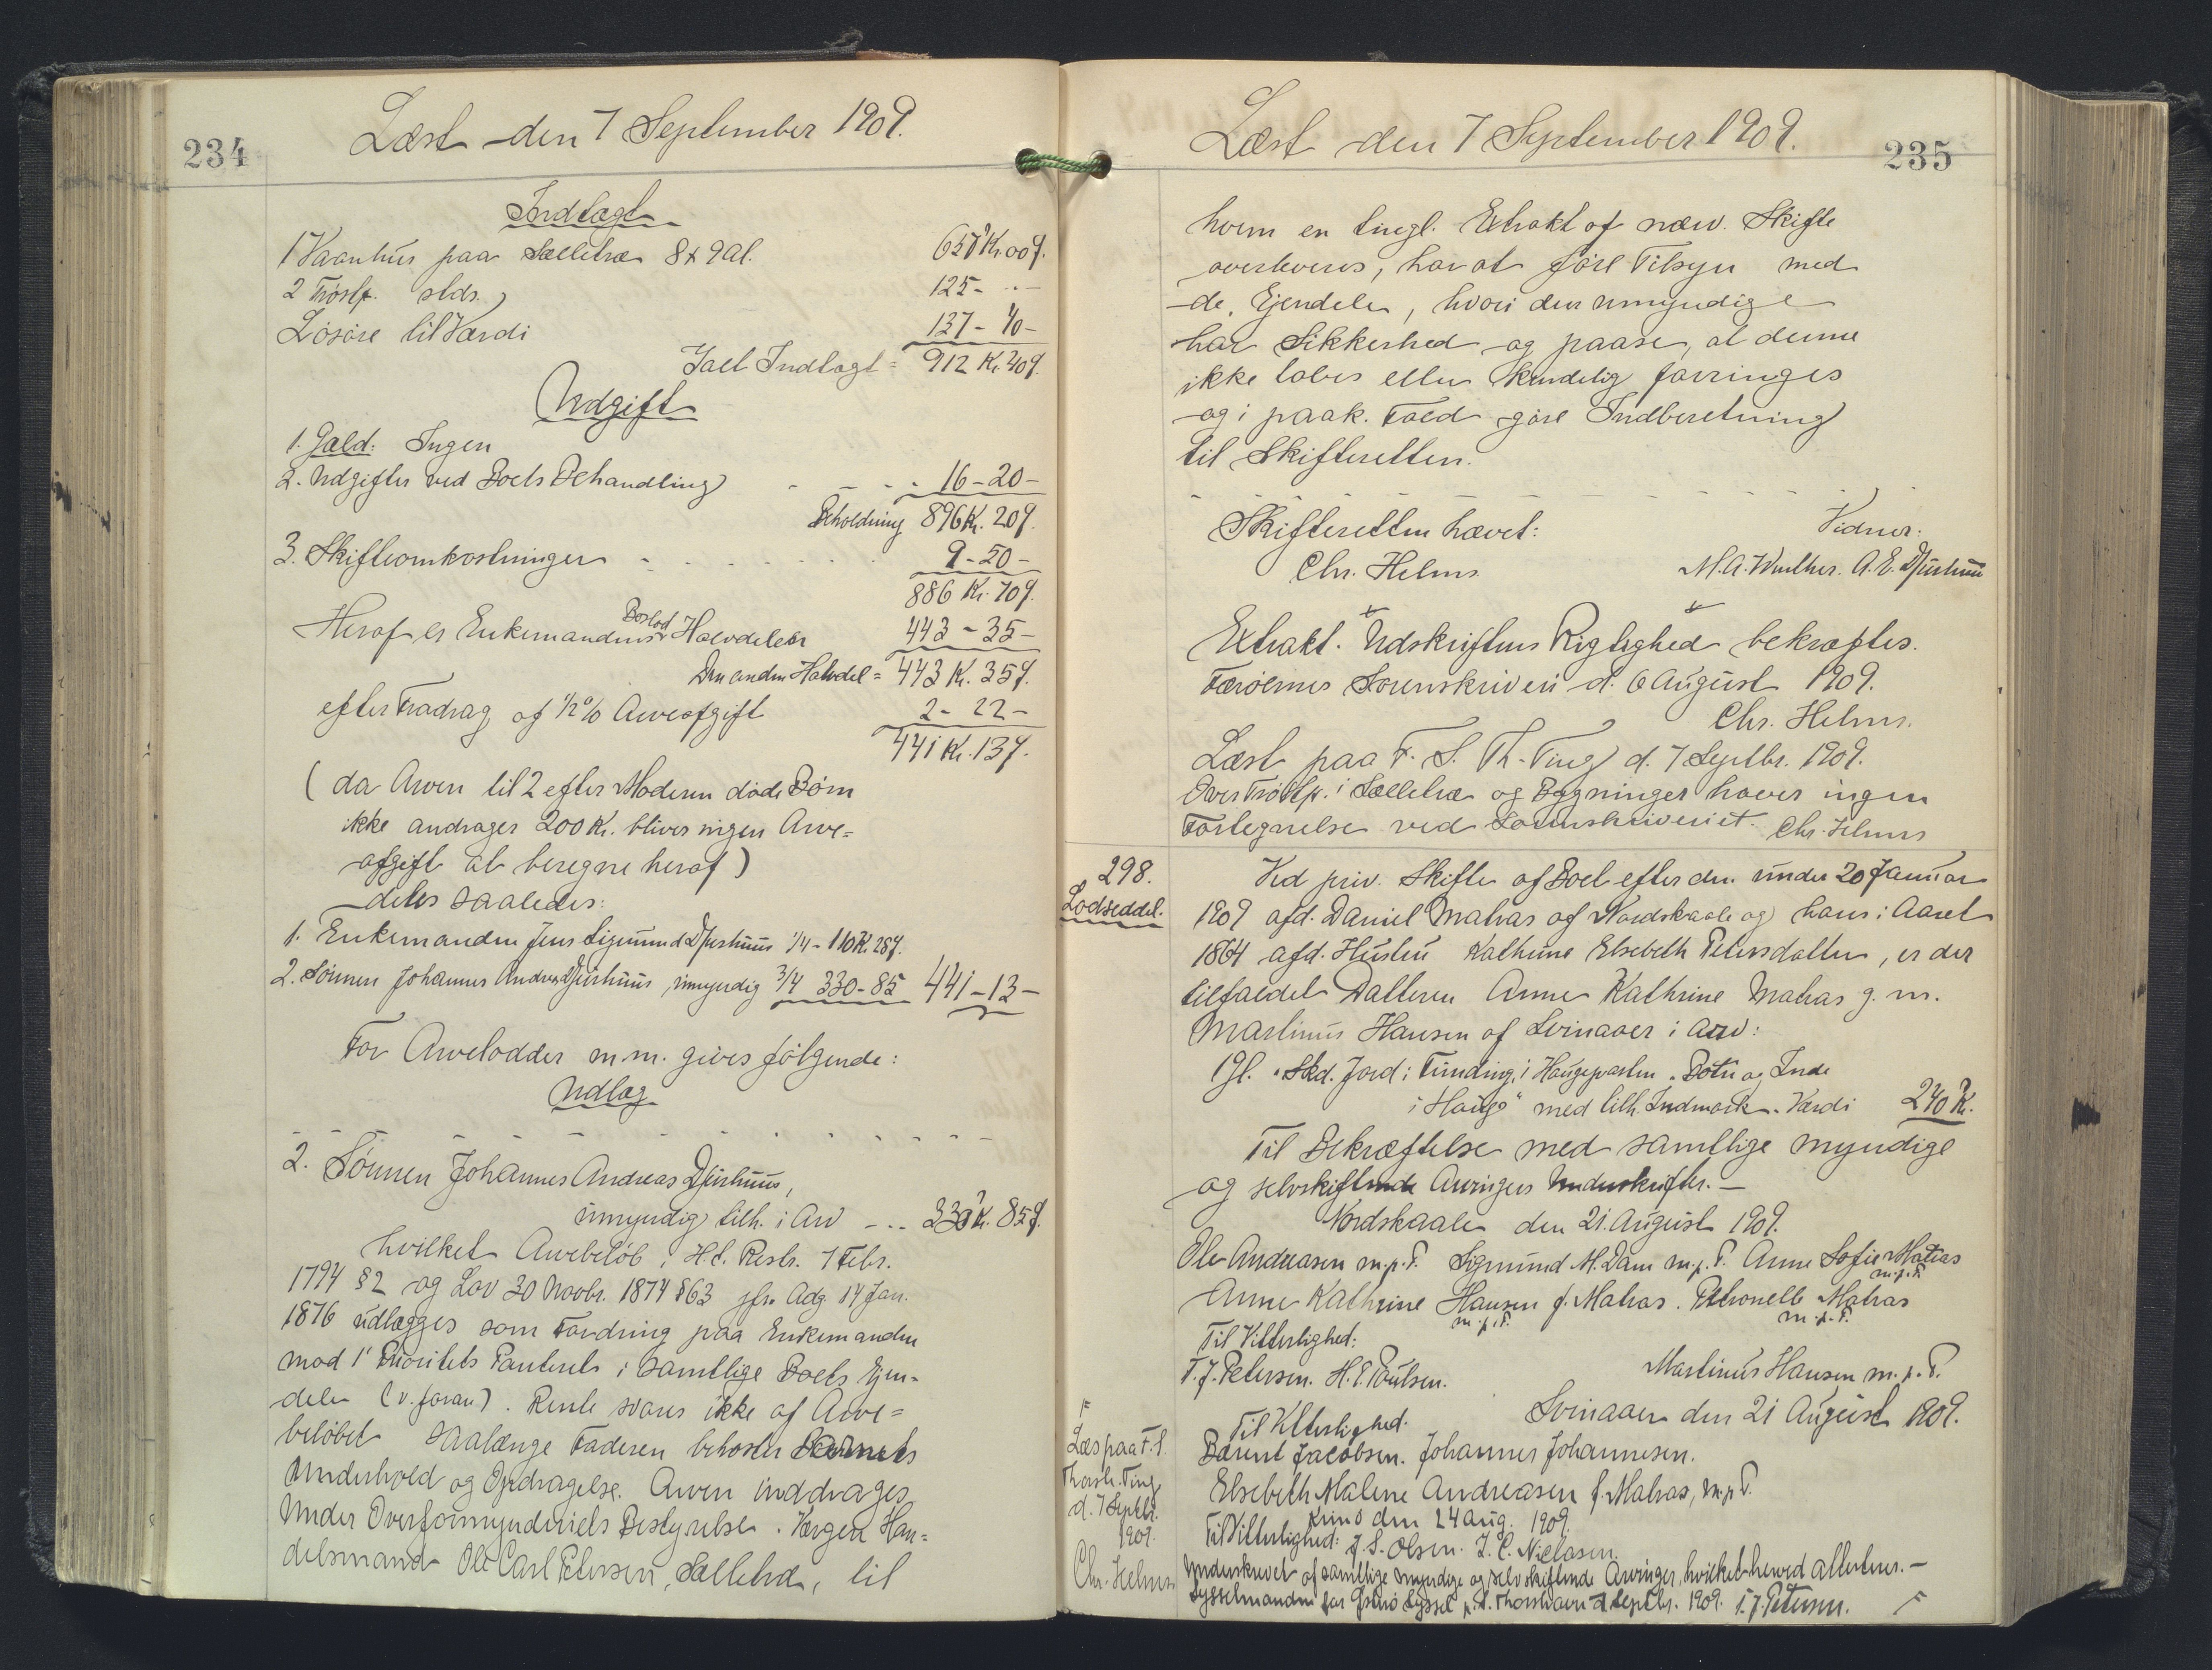 234
Læst den 7 September 1909.
Indtægt
1 Vaanhus paa Sælletræ 8 x 9 Al. 650 Kr. 00 Ø.
2 Tröslp. stds. 125 - " -
Lösöre til Værdi 137 - 40 -
Ialt Indtægt = 912 Kr. 40 Ø.
Udgift
1. Gæld: Ingen
2. Udgifter ved Boets Behandling - - - 16 - 20 -
Beholdning 896 Kr. 20 Ø.
3. Skifteomkostninger - - - 9 - 50 -
886 Kr. 70 Ø.
Heraf er Enkemandens Boslod Halvdelen 443 - 35 -
Den anden Halvdel = 443 Kr. 35 Ø.
efter Fradrag af 1/2 % Arveafgift 2 - 22 -
441 Kr. 13 Ø.
(da Arven til 2 efter Moderen døde Börn
ikke andrager 200 Kr. bliver ingen Arve=
afgift at beregne heraf)
deles saaledes:
1. Enkemanden Jens Sigmund Djurhuus 1/4 - 110 Kr. 28 Ø.
2. Sönnen Johannes Andreas Djurhuus, umyndig 3/4 330 - 85 441 - 13 -
For Arvelodder m.m. gives fölgende:
Udlæg
- - - - - - - - - -
2. Sönnen Johannes Andreas Djurhuus,
umyndig tilh. i Arv - - - 330 Kr. 85 Ø.
hvilket Arvebelöb i H.t. Reskr. 7 Febr.
1794 § 2 og Lov 30 Novbr. 1874 § 63 jfr. Adg 14 Jan.
1876 udlægges som Fordring paa Enkemanden
mod 1' Prioritets Panteret i samtlige Boets Ejen-
dele (v. foran). Rente svares ikke af Arve=
belöbet saalænge Faderen bekoster Barnets
Underhold og Opdragelse. Arven inddrages
under Overformynderiets Bestyrelse. Værgen Han=
delsmand Ole Carl Petersen, Sælletræ, til
235
Læst den 7 September 1909.
hvem en tingl. Extrakt af nærv. Skifte
overleveres, har at före Tilsyn med
de Ejendele, hvori den umyndige
har Sikkerhed og paase, at denne
ikke tabes eller kendelig forringes
og i paak. Fald göre Indberetning
til Skifteretten.
- - - - - - - - - -
Skifteretten hævet: Vidner:
Chr. Helms M.A. Winther. A.E. Djurhuus
Extrakt. Udskriftens Rigtighed bekræftes.
Færöernes Sorenskriveri d. 6 August 1909.
Chr. Helms.
Læst paa F. S. Th. Ting d. 7 Septbr. 1909.
Over Tröslp. i Sælletræ og Bygninger haves ingen
Fortegnelse ved Sorenskriveriet. Chr. Helms
298.
Lodseddel.
Ved priv. Skifte af Boet efter den under 20 Januar
1909 afd. Daniel Matras af Nordskaale og hans i Aaret
1864 afd. Hustru Kathrine Elsebeth Petersdatter, er der
tilfaldet Datteren Anne Kathrine Matras g. m.
Martinus Hansen af Svinaaer i Arv:
1 Gl. " Skd. Jord i Funding, i Haugeparten "Botn og Inde
i Hauge" med tilh. Indmark. Værdi 240 Kr.
Til Bekræftelse med samtlige myndige
og selvskiftende Arvingers Underskrifter. -
Nordskaale den 21. August 1909.
Ole Andreasen m.p.F. Sigmund M. Dam m.p.F. Anne Sofie Matras
m.p.F.
Anne Kathrine Hansen f. Matras. Petronelle Matras
m.p.F. m.p.F.
Til Vitterlighed:
T. J. Petersen. H. E. Poulsen. Martinus Hansen m.p.F.
Svinaaer den 21 August 1909.
Til Vitterlighed.
Barent Jacobsen. Johannes Johannesen.
Elsebeth Malene Andreasen f. Matras, m.p.F.
Kunö den 24 Aug. 1909.
Til Vitterlighed: J. S. Olsen. I. C. Niclasen.
Underskrevet af samtlige myndige og selvskiftende Arvinger, hvilket herved attesteres. -
Sysselmanden for Österö Syssel p.t. Thorshavn 7 Septbr. 1909. T. J. Petersen.
Læs paa F. S.
Thorsh. Ting
d. 7 Septbr.
1909.
Chr. Helms